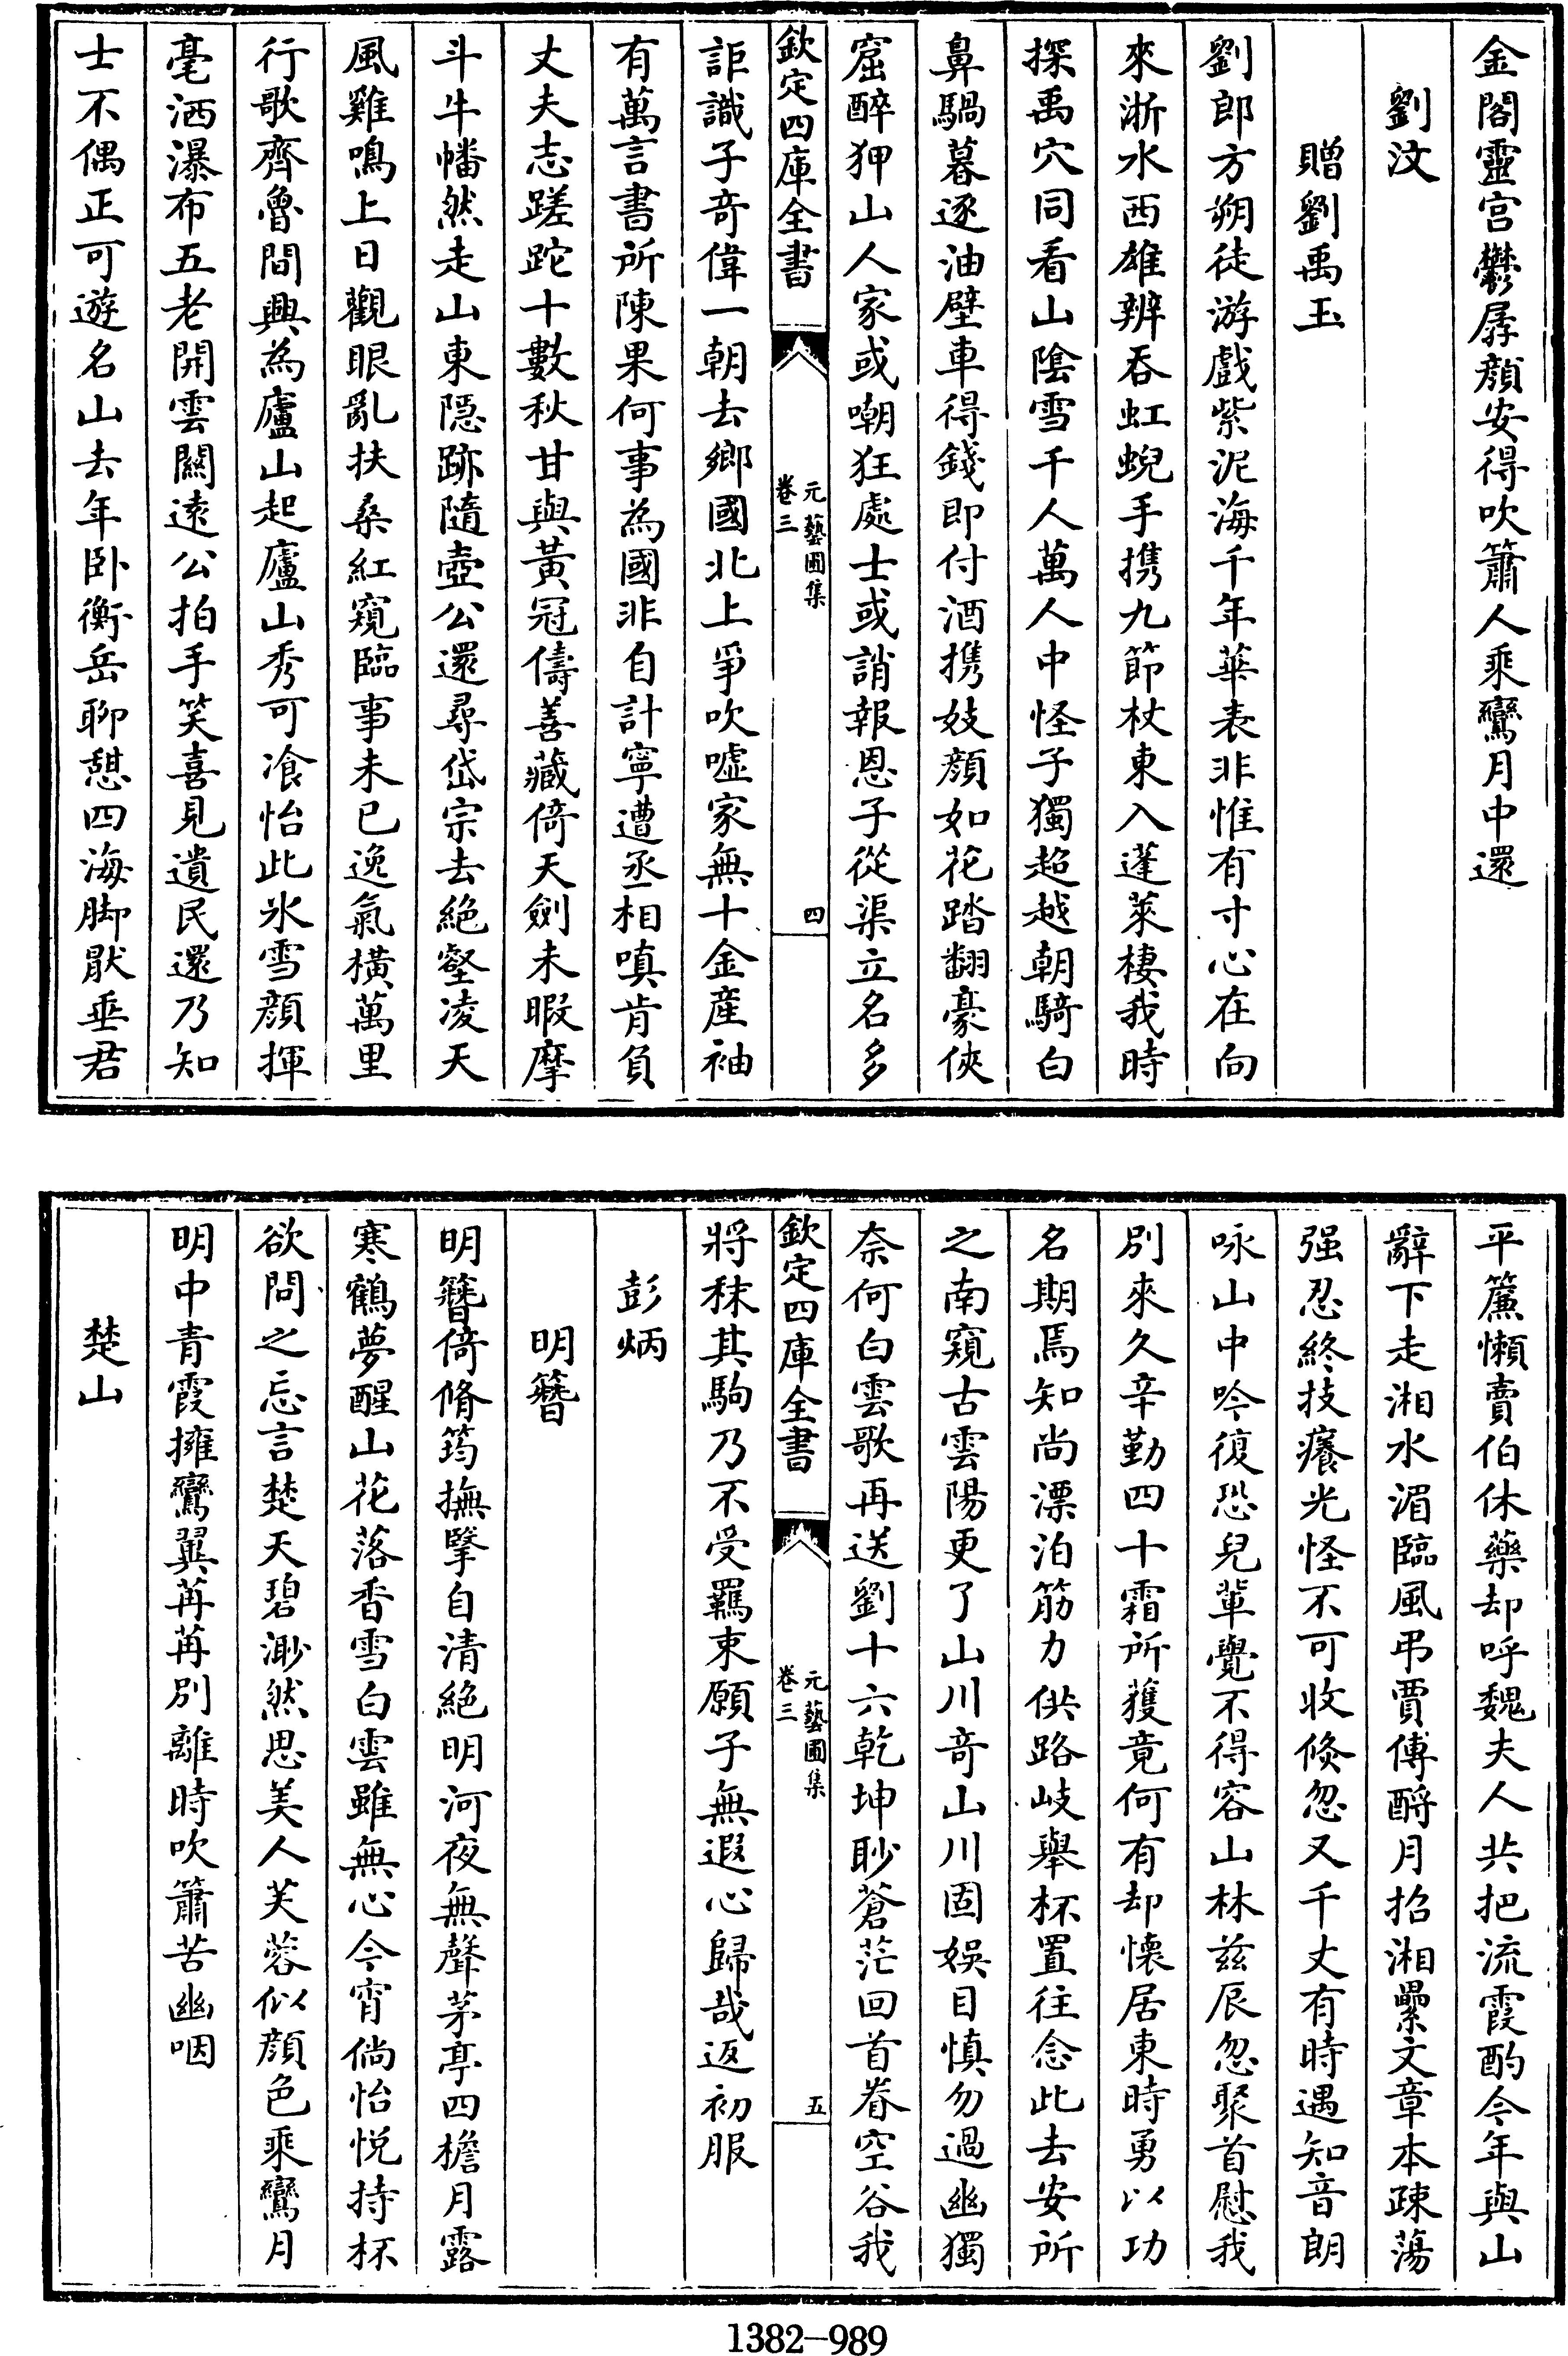 金閣靈宫鬱孱顔安得吹簫人乘鸞月中還
劉汶
贈劉禹玉
劉郎方朔徒游戲紫泥海千年華表非惟有寸心在向
來浙水西雄辨吞虹蜺手携九節杖東入蓬萊棲我時
探禹穴同看山隂雪千人萬人中怪子獨超越朝騎白
鼻騧暮逐油壁車得錢即付酒携妓顔如花踏翻豪俠
窟醉狎山人家或嘲狂處士或誚報恩子從渠立名多
欽定四庫全書
元藝圃集
卷三
四
詎識子奇偉一朝去鄉國北上爭吹噓家無十金産袖
有萬言書所陳果何事為國非自計寧遭丞相嗔肯負
丈夫志蹉跎十數秋甘與黃冠儔善藏倚天劍未暇摩
斗牛幡然走山東隱跡隨壺公還尋岱宗去絶壑凌天
風雞鳴上日觀眼亂扶桑紅窺臨事未已逸氣橫萬里
行歌齊魯間興為廬山起廬山秀可飡怡此氷雪顔揮
毫洒瀑布五老開雲關遠公拍手笑喜見遺民還乃知
士不偶正可遊名山去年卧衡岳聊憇四海脚厭垂君
平簾懶賣伯休藥却呼魏夫人共把流霞酌今年與山
辭下走湘水湄臨風弔賈傅酹月招湘纍文章本疎蕩
强忍終技癢光怪不可收倐忽又千丈有時遇知音朗
咏山中吟復恐兒輩覺不得容山林兹辰忽聚首慰我
别來久辛勤四十霜所獲竟何有却懷居東時勇以功
名期焉知尚漂泊筋力供路岐舉杯置往念此去安所
之南窺古雲陽更了山川奇山川固娛目慎勿過幽獨
奈何白雲歌再送劉十六乾坤眇蒼茫回首眷空谷我
欽定四庫全書
元藝圃集
卷三
五
將秣其駒乃不受羈束願子無遐心歸哉返初服
彭炳
明簪
明簪倚脩筠撫擥自清絶明河夜無聲茅亭四檐月露
寒鶴夢醒山花落香雪白雲雖無心今宵倘怡悦持杯
欲問之忘言楚天碧渺然思美人芙蓉似顔色乘鸞月
明中青霞擁鸞翼苒苒别離時吹簫苦幽咽
楚山
1382-989